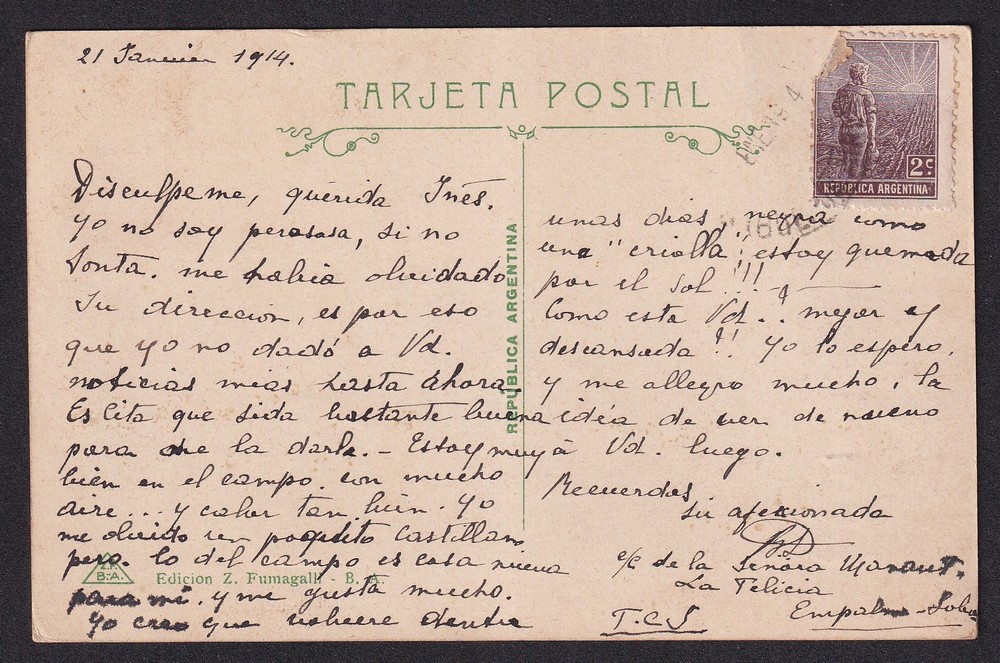 21 Janvier 1914.
TARJETA POSTAL
2c
REPÚBLICA ARGENTINA
REPUBLICA ARGENTINA
Disculpeme, querida Inés.
yo no soy perososa, si no
tonta. me habia olvidado
su direccion, es por eso
que yo no dadó a Vd.
noticias mias hasta ahora.
Es cita que sida bastante buena
para me la darla. - Estoy muy
bien en el campo. con mucho
aire... y calor tan bien. yo
me olvido un poquito castillano
pero. lo del campo es cosa nueva
para mi. y me gusta mucho.
yo creo que volvere dentro
unas dias negra como
una "criolla", estoy quemada
por el sol!!!
Como esta Vd.. mejor y
descansada!! yo lo espero,
y me allegro mucho, la
idéa de ver de nuevo
à Vd. luego.
Recuerdos
su afexionada
c/o de la Senõra
La Felicia
Empalme
T.C.S
Z.F.
B.A.
Edicion Z. Fumagalli - B. A.